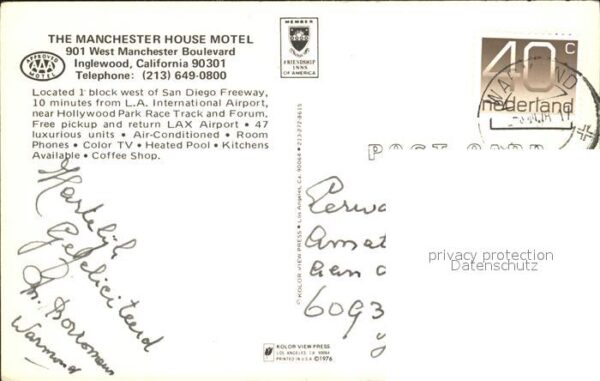 THE MANCHESTER HOUSE MOTEL
901 West Manchester Boulevard
Inglewood, California 90301
Telephone: (213) 649-0800
APPROVED
AAA
MOTEL
Located 1 block west of San Diego Freeway,
10 minutes from L.A. International Airport,
near Hollywood Park Race Track and Forum.
Free pickup and return LAX Airport • 47
luxurious units • Air-Conditioned • Room
Phones • Color TV • Heated Pool • Kitchens
Available • Coffee Shop.
MEMBER
FRIENDSHIP
INNS
OF AMERICA
40 c
nederland
POST CARD
Hartelijk
Gefeliciteerd
Warmond
© KOLOR VIEW PRESS • Los Angeles, Ca. 90064 • 213-272-8615
6093
privacy protection
Datenschutz
KOLOR VIEW PRESS
LOS ANGELES CA. 90064
PRINTED IN U.S.A. ©1976